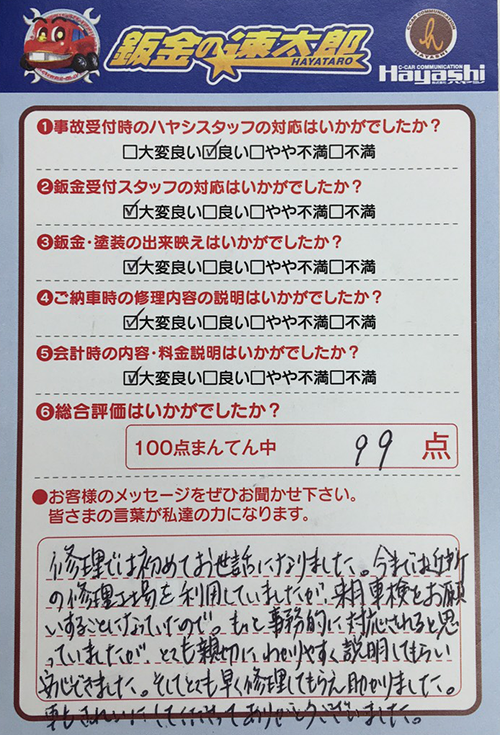 鈑金の速太郎
HAYATARO
C-CAR COMMUNICATION
Hayashi
❶事故受付時のハヤシスタッフの対応はいかがでしたか？
□大変良い☑良い□やや不満□不満
❷鈑金受付スタッフの対応はいかがでしたか？
☑大変良い□良い□やや不満□不満
❸鈑金・塗装の出来映えはいかがでしたか？
☑大変良い□良い□やや不満□不満
❹ご納車時の修理内容の説明はいかがでしたか？
☑大変良い□良い□やや不満□不満
❺会計時の内容・料金説明はいかがでしたか？
☑大変良い□良い□やや不満□不満
❻総合評価はいかがでしたか？
100点まんてん中 99 点
●お客様のメッセージをぜひお聞かせ下さい。
皆さまの言葉が私達の力になります。
修理では初めてお世話になりました。今までは近所
の修理工場を利用していましたが、来月車検をお願
いすることになっていたので。もっと事務的に対応されると思
っていましたが、とても親切に、わかりやすく説明してもらい
安心できました。そしてとても早く修理してもらえ助かりました。
車もきれいにして下さってありがとうございました。